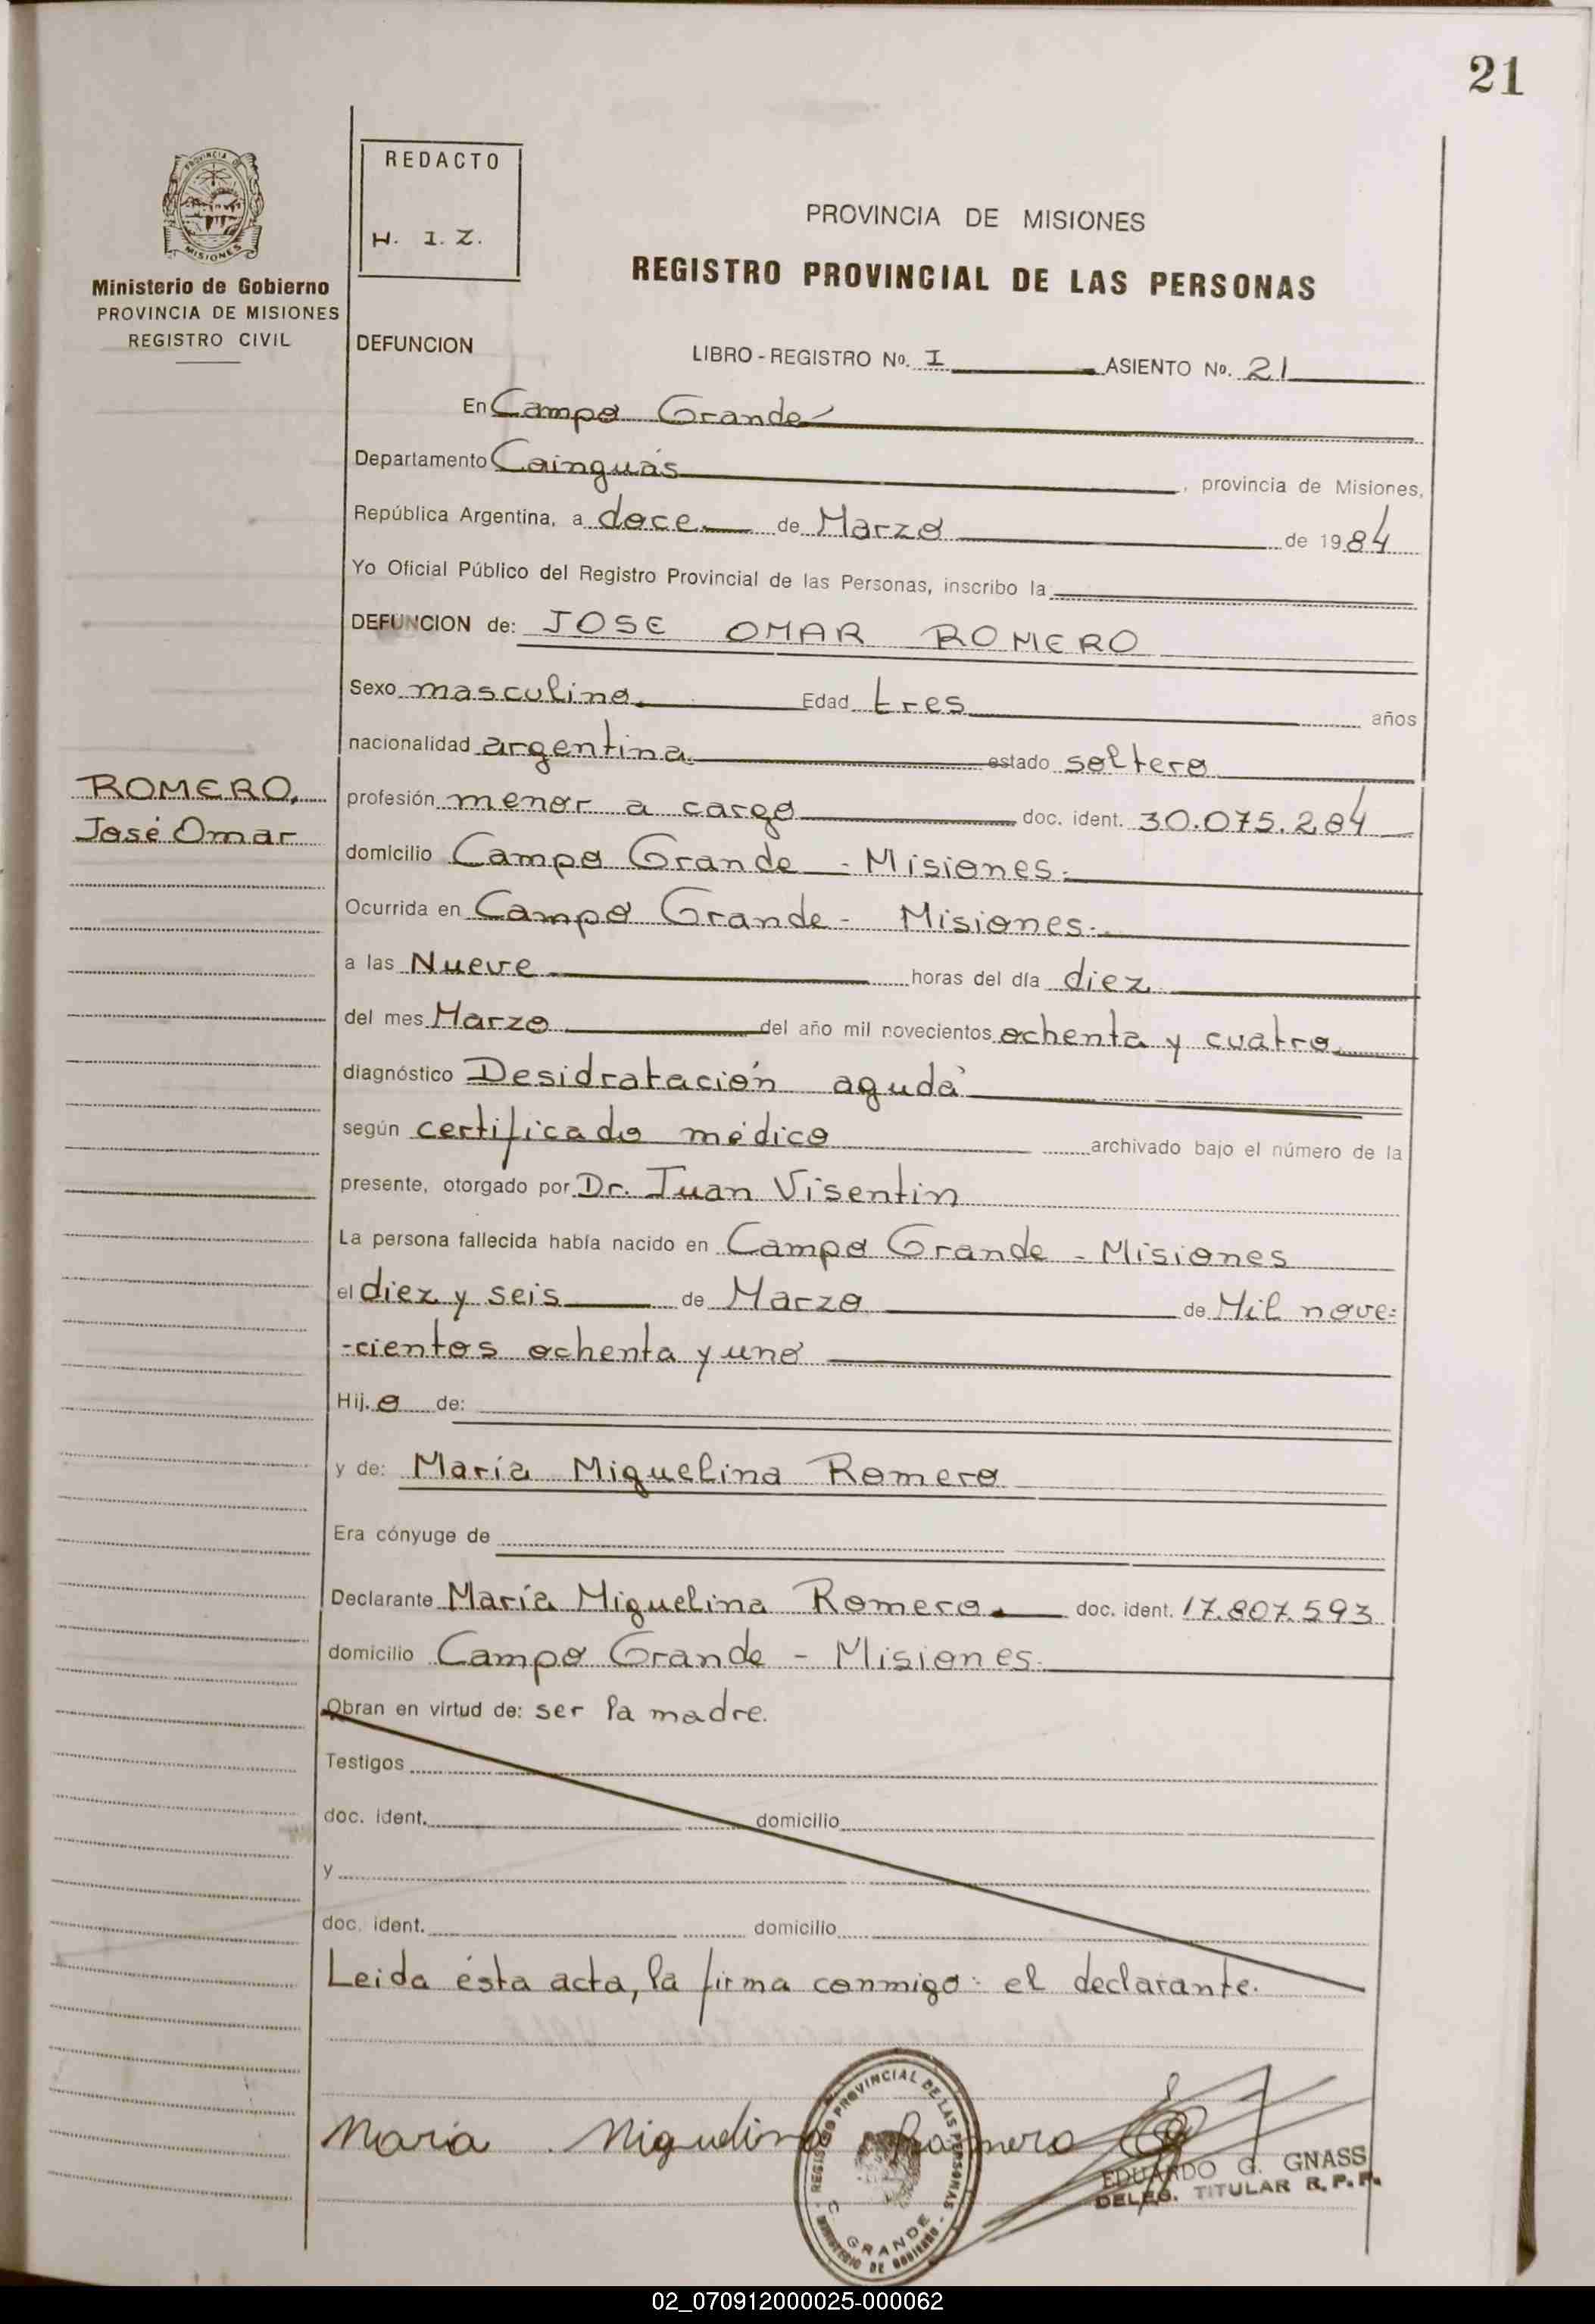 21
PROVINCIA DE
MISIONES
Ministerio de Gobierno
PROVINCIA DE MISIONES
REGISTRO CIVIL
REDACTO
H. I. Z.
PROVINCIA DE MISIONES
REGISTRO PROVINCIAL DE LAS PERSONAS
DEFUNCION LIBRO - REGISTRO Nº. I ASIENTO Nº. 21
En Campo Grande
Departamento Cainguás, provincia de Misiones,
República Argentina, a doce de Marzo de 1984
Yo Oficial Público del Registro Provincial de las Personas, inscribo la
DEFUNCION de: JOSE OMAR ROMERO
Sexo masculino Edad tres años
nacionalidad argentina estado soltero
ROMERO,
José Omar
profesión menor a cargo doc. ident. 30.075.284
domicilio Campo Grande - Misiones.
Ocurrida en Campo Grande - Misiones.
a las Nueve horas del día diez
del mes Marzo del año mil novecientos ochenta y cuatro
diagnóstico Desidratación aguda
según certificado médico archivado bajo el número de la
presente, otorgado por Dr. Juan Visentin
La persona fallecida había nacido en Campo Grande - Misiones
el diez y seis de Marzo de Mil nove=
-cientos ochenta y uno
Hij.o de:
y de: María Miguelina Romero
Era cónyuge de
Declarante María Miguelina Romero doc. ident. 17.807.593
domicilio Campo Grande - Misiones.
Obran en virtud de: ser la madre.
Testigos
doc. ident. domicilio
y
doc. ident. domicilio
Leida ésta acta, la firma conmigo: el declarante.
María Miguelina Romero
REGISTRO PROVINCIAL DE LAS PERSONAS
C. GRANDE
MINISTERIO DE GOBIERNO
EDUARDO G. GNASS
DELEG. TITULAR R.P.P.
02_070912000025-000062